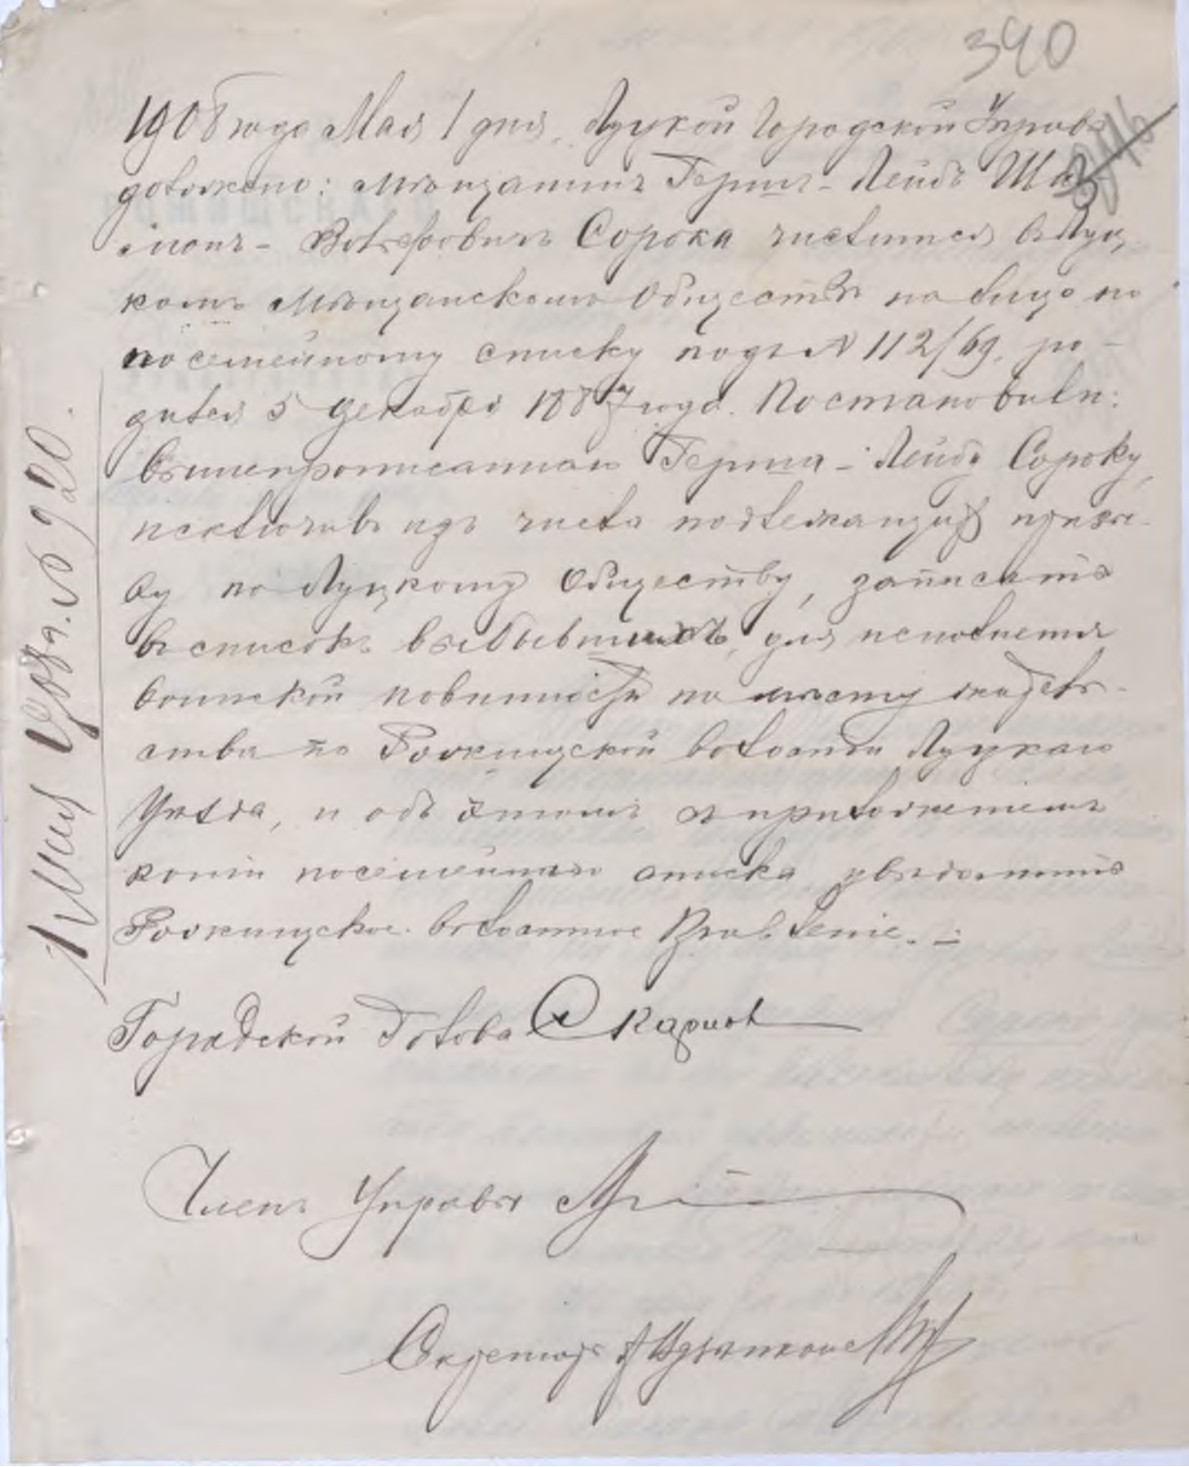 340
1908 года Мая 1 дня, Луцкой Городской Управѣ
доложено: мѣщанинъ Гершъ-Лейбъ
Вольфовичъ Сорока числится въ Луц
комъ мѣщанскомъ Обществѣ на лицо по
посемейному списку подъ № 112/69, ро-
дился 5 декабря 1887 года. Постановили:
Вышепрописаннаго Герша-Лейбу Сороку,
исключивъ изъ числа подлежащихъ призы-
ву по Луцкому Обществу, записать
въ списокъ выбывшихъ, для исполненія
воинской повинности по мѣсту жительства
ства по Рожищской волости Луцкаго
Уѣзда, и объ этомъ съ приложеніемъ
копіи посемейнаго списка увѣдомить
Рожищское волостное Правленіе.
Городской Голова
Членъ Управы
Секретарь
1 Мая 1908 г. № 920.